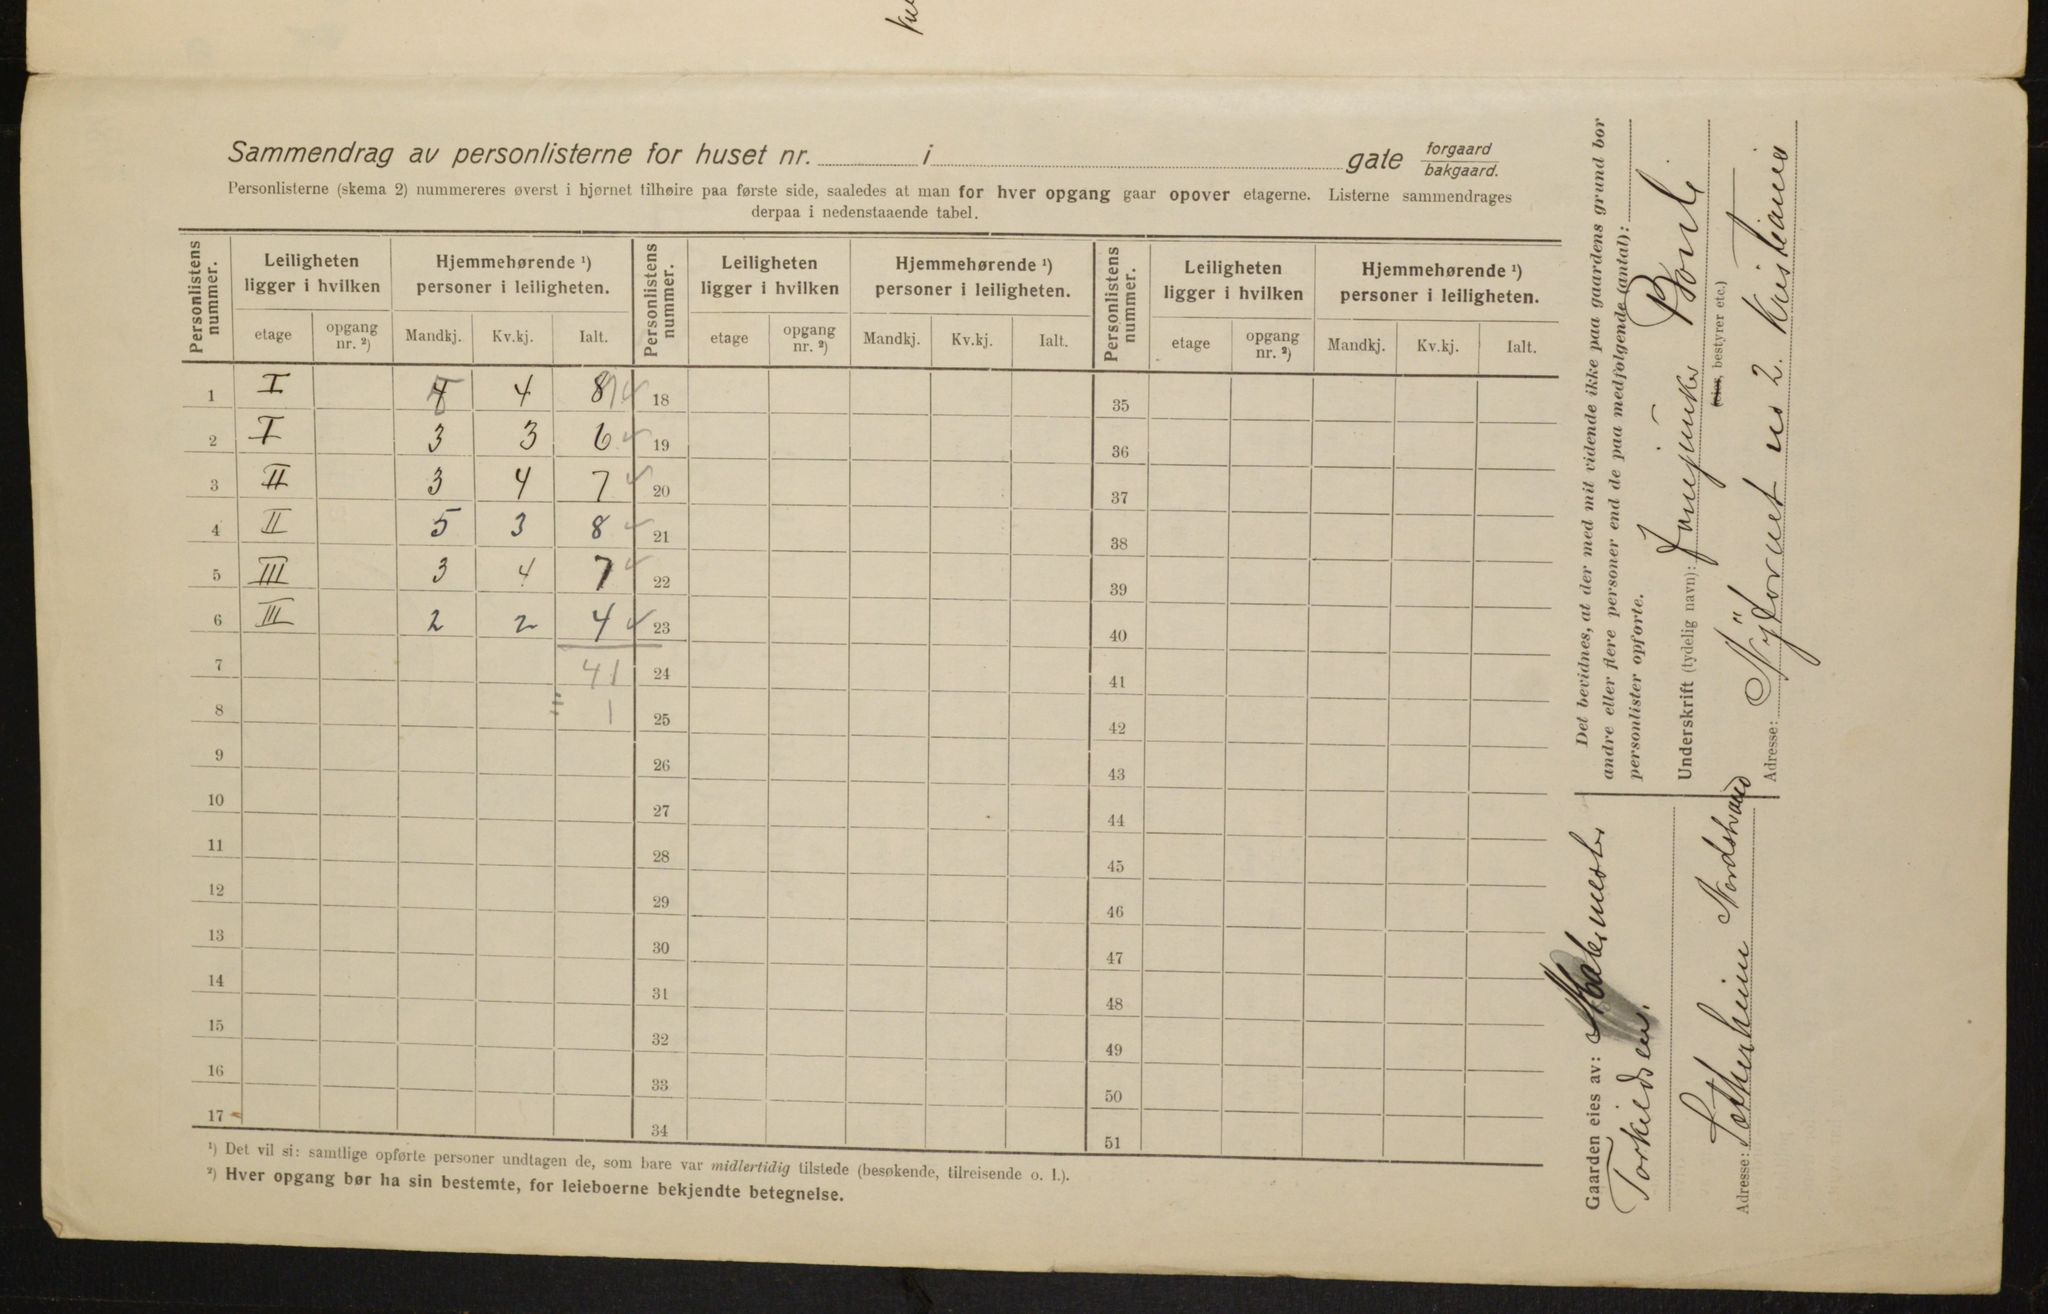 Sammendrag av personlisterne for huset nr. i gate forgaard / bakgaard.
Personlisterne (skema 2) nummereres øverst i hjørnet tilhøire paa første side, saaledes at man for hver opgang gaar opover etagerne. Listerne sammendrages
derpaa i nedenstaaende tabel.
Personlistens nummer. Leiligheten ligger i hvilken Hjemmehørende ¹) personer i leiligheten. Personlistens nummer. Leiligheten ligger i hvilken Hjemmehørende ¹) personer i leiligheten. Personlistens nummer. Leiligheten ligger i hvilken Hjemmehørende ¹) personer i leiligheten.
etage opgang nr. ²) Mandkj. Kv.kj. Ialt. etage opgang nr. ²) Mandkj. Kv.kj. Ialt. etage opgang nr. ²) Mandkj. Kv.kj. Ialt.
1 I 4 4 8 18 35
2 I 3 3 6 19 36
3 II 3 4 7 20 37
4 II 5 3 8 21 38
5 III 3 4 7 22 39
6 III 2 2 4 23 40
7 41 24 41
8 1 25 42
9 26 43
10 27 44
11 28 45
12 29 46
13 30 47
14 31 48
15 32 49
16 33 50
17 34 51
¹) Det vil si: samtlige opførte personer undtagen de, som bare var midlertidig tilstede (besøkende, tilreisende o. l.).
²) Hver opgang bør ha sin bestemte, for leieboerne bekjendte betegnelse.
Det bevidnes, at der med mit vidende ikke paa gaardens grund bor
andre eller flere personer end de paa medfølgende (antal):
personlister opførte.
Underskrift (tydelig navn):
(eier, bestyrer etc.)
Adresse: Nytorvet no 2. Kristiania
Gaarden eies av: Malermester
Torkildsen.
Adresse: Sæterheim Nordstrand